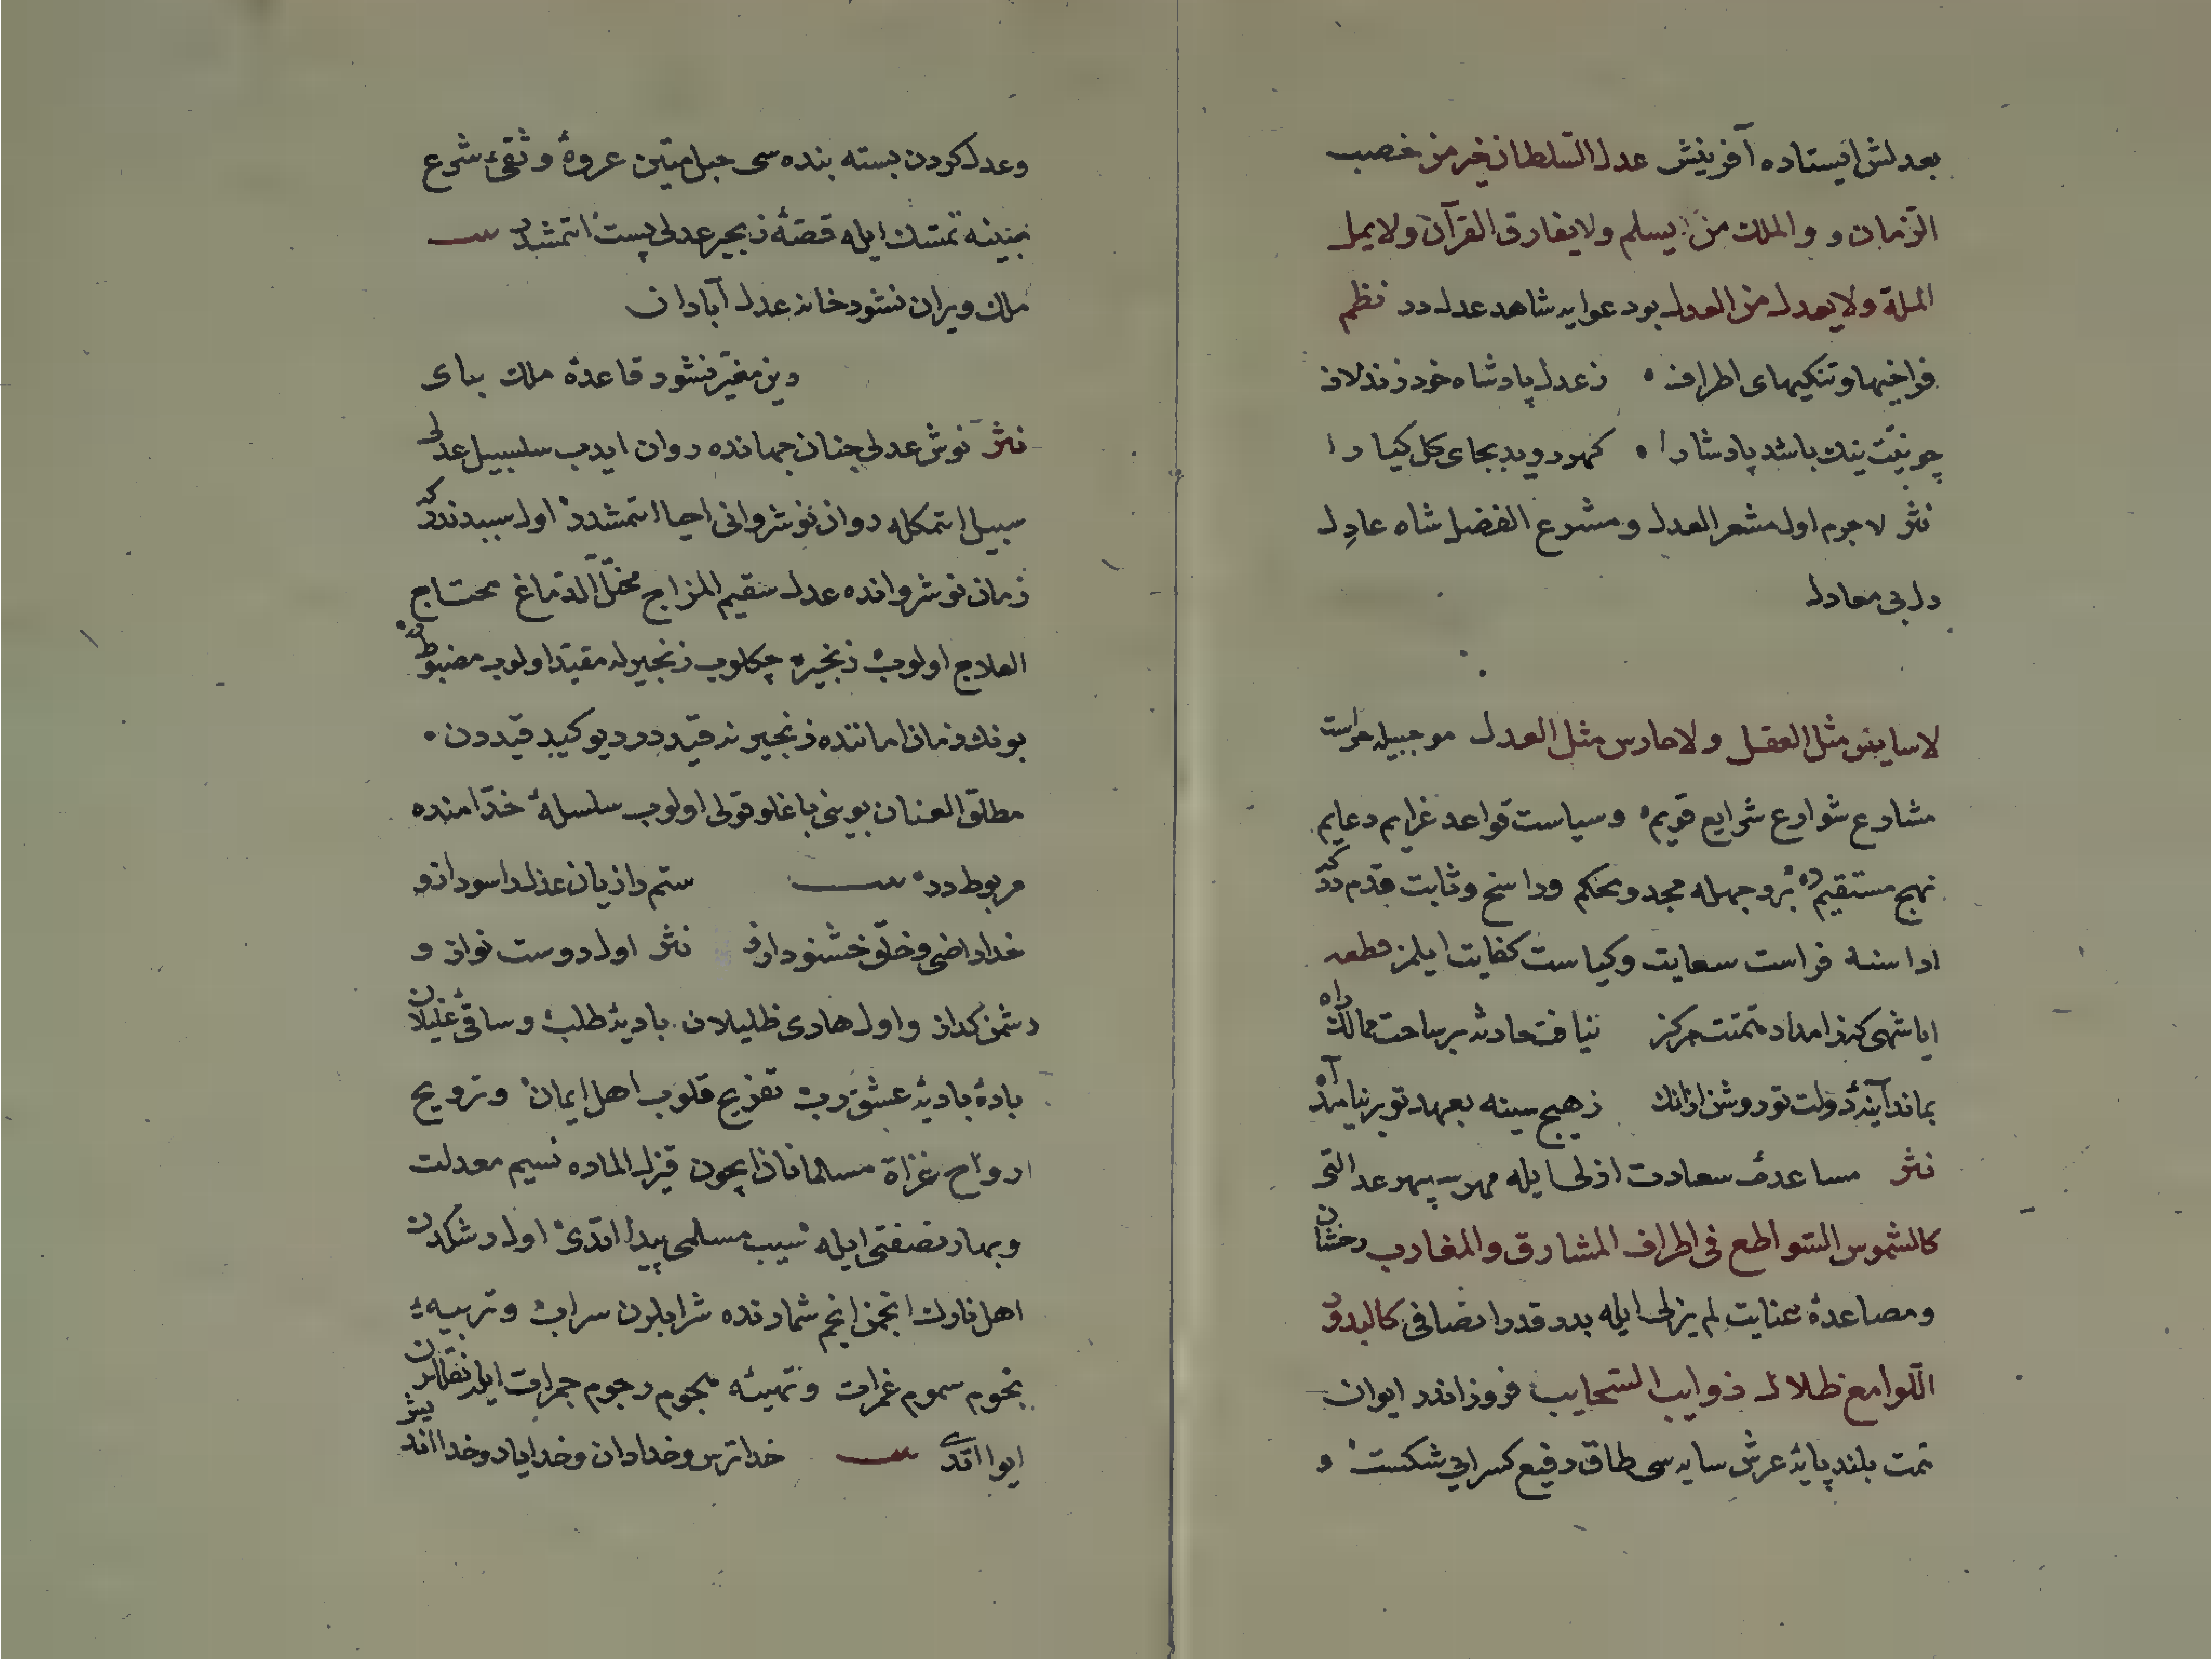 بعدلش ایستاده آفرینش عدل السلطان خیر من خصب
الزمان و والملك من یسلم ولا یفارق القرآن ولا یمل
الملة ولا یعدل من العدل بود عوایه شاهد عدل در نظم
فراخیها وتنکیهای اطراف ٥ زعدل پادشاه خود زند لاف
چو نیّت نیك باشد پادشا را ٥ کهر روید بجای کل کیا را
نثر لاجرم اول مشعر العدل و مشرع الفضل شاه عادِل
دل بی معادل
لا سایس مثل العقل ولا حارس مثل العدل موجبیله حراست
مشارع شوارع شرایع قویم وسیاست قواعد غرایم دعایم
نهج مستقیم ده بر وجهله مجد ومحکم وراسخ وثابت قدم در که
اراسنه فراست سعایت وکیاست کفایت ایلمز قطعه
ایا شهی که ز امداد متمنت هرکز نیافت حادثه بر ساحت ممالك راه
بماند آینهٔ دولت تو روشن ازانك ز هیچ سینه بعهد تو بر نیامد آه
نثر مساعدهٔ سعادت ازلی ایله مهر سپهر عدالتی
کالشموس السواطع فی اطراف المشارق والمغارب رخشان
ومصاعدهٔ عنایت لم یزلی ایله بدر قدر انصافی کالبدور
اللوامع ظلال ذوایب السحایب فروزاندر ایوان
همت بلند پایهٔ عرش سایه سی طاق رفیع کسرایی شکست و
وعدل کردن بسته بنده سی حبل متین عروهٔ وثقیٔ شرع
مبینه تمسّك ایله قصّهٔ زنجیر عدلی پست اتمشدر
ملك ویران نشود خانه عدل آبادان
دین مغیّر نشود قاعدهٔ ملك بپای
نثر نوش عدلی جنان جهانده روان ایدب سلسبیل عدلی
سبیل اتمکله روان نوشروانی احیا اتمشدر اول سببدندر که
زمان نوشروانده عدل سقیم المزاج مختلّ الدماغ محتاج
العلاج اولوب زنجیره چکلوب زنجیرله مقیّد اولوب مضبوط در
بونك زمان اماننده زنجیر نه قید در دیو کید قیددن
مطلق العنان بوینی باغلو قولی اولوب سلسلهٔ خدّامنده
مربوط در ستم را زیان عدل را سود ازو
خدا راضی وخلق خشنود ازو نثر اول دوست نواز و
دشمن کداز واول هادی ظلیلان بادیهٔ طلب وساقیٔ غلیلان
بادهٔ بادیهٔ عشق رب تفریح قلوب اهل ایمان وترویح
ارواح غزاة مسلمانان ایچون قیزل الماده نسیم معدلت
وبهار نصفتی ایله سیب مسلمی پیدا اتدی اول رشكدن
اهل نارك انجمن انجم شمارنده شرابلرن سراب وتربیهٔ
نجوم سموم غمرات وتهیئه هجوم رجوم جمرات ایله نقللرن
ایوا اتدی خداترس وخدادان وخدایاد وخدا اندیش